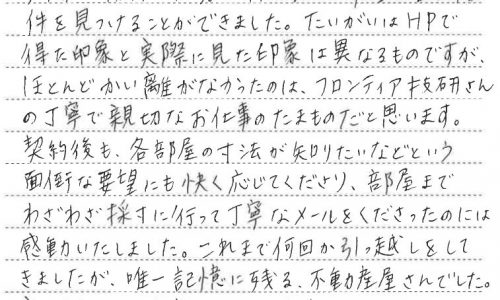 件を見つけることができました。たいがいはHPで
得た印象と実際に見た印象は異なるものですが、
ほとんどかい離がなかったのは、フロンティア技研さん
の丁寧で親切なお仕事のたまものだと思います。
契約後も、各部屋の寸法が知りたいなどという
面倒な要望にも快く応じてくださり、部屋まで
わざわざ採寸に行って丁寧なメールをくださったのには
感動いたしました。これまで何回か引っ越しをして
きましたが、唯一記憶に残る、不動産屋さんでした。